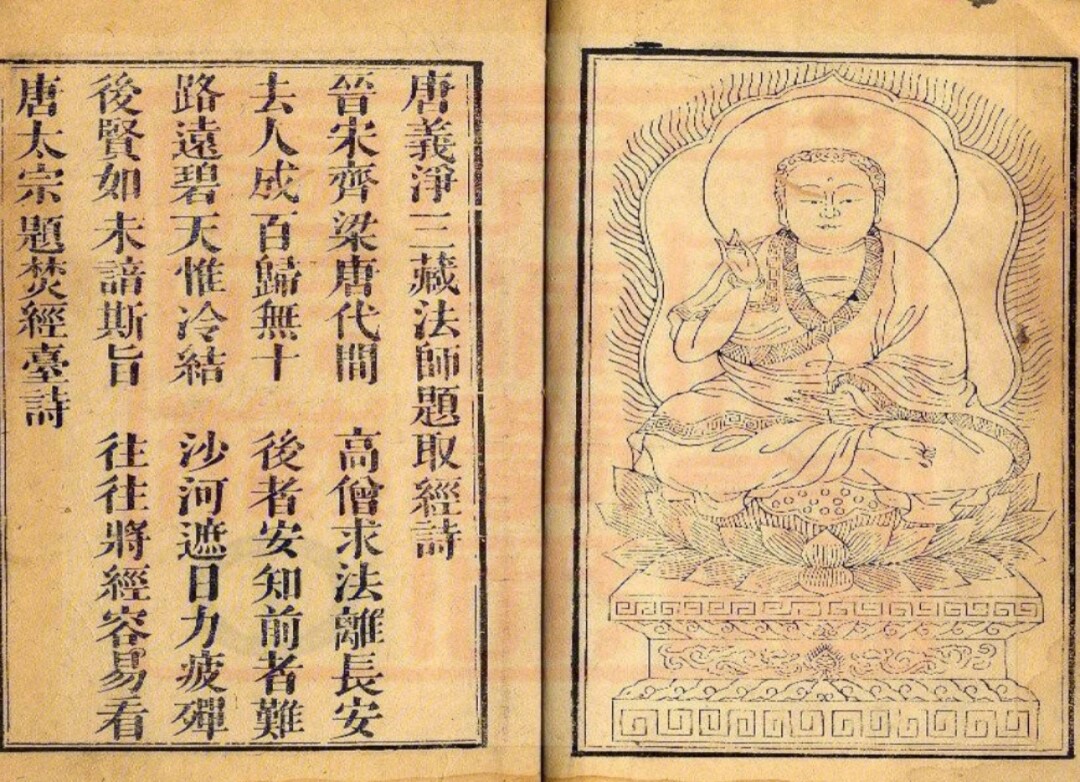 唐義淨三藏法師題取經詩
晉宋齊梁唐代間 高僧求法離長安
去人成百歸無十 後者安知前者難
路遠碧天惟冷結 沙河遮日力疲殫
後賢如未諳斯旨 往往將經容易看
唐太宗題焚經臺詩